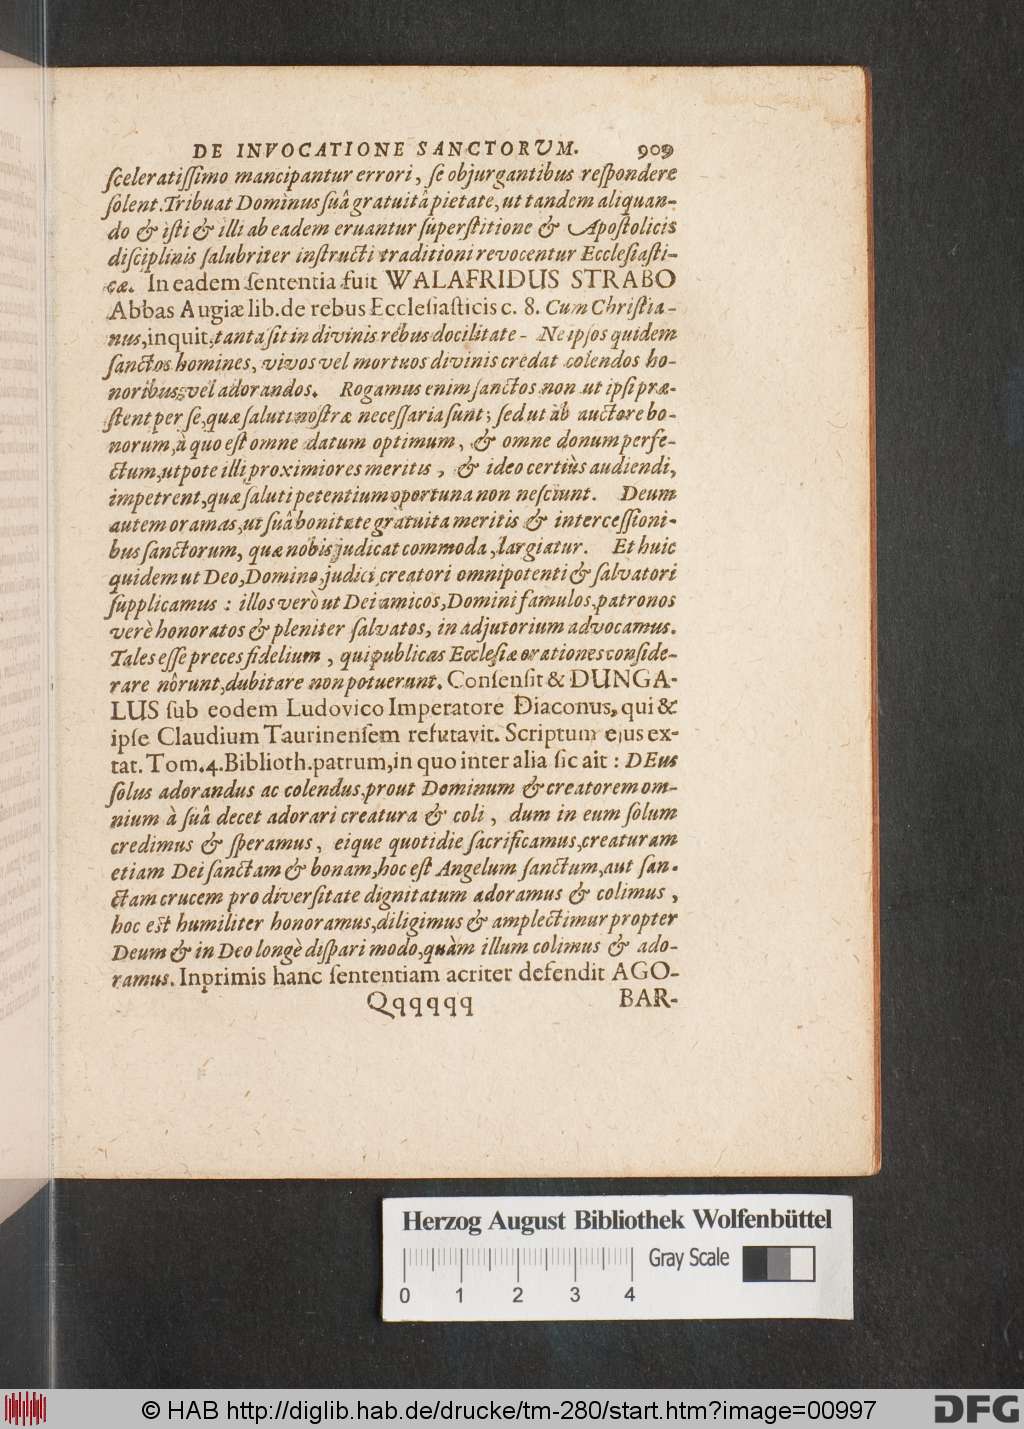 DE INVOCATIONE SANCTORUM. 909
ſceleratiſſimo mancipantur errori, ſe objurgantibus reſpondere
ſolent. Tribuat Dominus ſuâ gratuitâ pietate, ut tandem aliquan-
do & iſti & illi ab eadem eruantur ſuperſtitione & Apoſtolicis
diſciplinis ſalubriter inſtructi traditioni revocentur Eccleſiaſti-
cæ. In eadem ſententia fuit WALAFRIDUS STRABO
Abbas Augiæ lib. de rebus Eccleſiaſticis c. 8. Cum Chriſtia-
nus, inquit, tanta ſit in divinis rebus docilitate - Ne ipſos quidem
ſanctos homines, vivos vel mortuos divinis credat colendos ho-
noribus, vel adorandos. Rogamus enim ſanctos non ut ipſi præ-
ſtent per ſe, quæ ſaluti noſtræ neceſſaria ſunt; ſed ut ab auctore bo-
norum, à quo eſt omne datum optimum, & omne donum perfe-
ctum, utpote illi proximiores meritis, & ideo certiùs audiendi,
impetrent, quæ ſaluti petentium oportuna non neſciunt. Deum
autem oramas, ut ſuâ bonitate gratuita meritis & interceſſioni-
bus ſanctorum, quæ nobis judicat commoda, largiatur. Et huic
quidem ut Deo, Domino, judici, creatori omnipotenti & ſalvatori
ſupplicamus : illos verò ut Dei amicos, Domini famulos, patronos
verè honoratos & pleniter ſalvatos, in adjutorium advocamus.
Tales eſſe preces fidelium, qui publicas Eccleſiæ orationes conſide-
rare nôrunt, dubitare non potuerunt. Conſenſit & DUNGA-
LUS ſub eodem Ludovico Imperatore Diaconus, qui &
ipſe Claudium Taurinenſem refutavit. Scriptum ejus ex-
tat. Tom. 4. Biblioth. patrum, in quo inter alia ſic ait : DEus
ſolus adorandus ac colendus, prout Dominum & creatorem om-
nium à ſuâ decet adorari creatura & coli, dum in eum ſolum
credimus & ſperamus, eique quotidie ſacrificamus, creaturam
etiam Dei ſanctam & bonam, hoc eſt Angelum ſanctum, aut ſan-
ctam crucem pro diverſitate dignitatum adoramus & colimus,
hoc eſt humiliter honoramus, diligimus & amplectimur propter
Deum & in Deo longè diſpari modo, quàm illum colimus & ado-
ramus. Inprimis hanc ſententiam acriter defendit AGO-
Qqqqqq BAR-
Herzog August Bibliothek Wolfenbüttel
Gray Scale
0 1 2 3 4
© HAB http://diglib.hab.de/drucke/tm-280/start.htm?image=00997
DFG